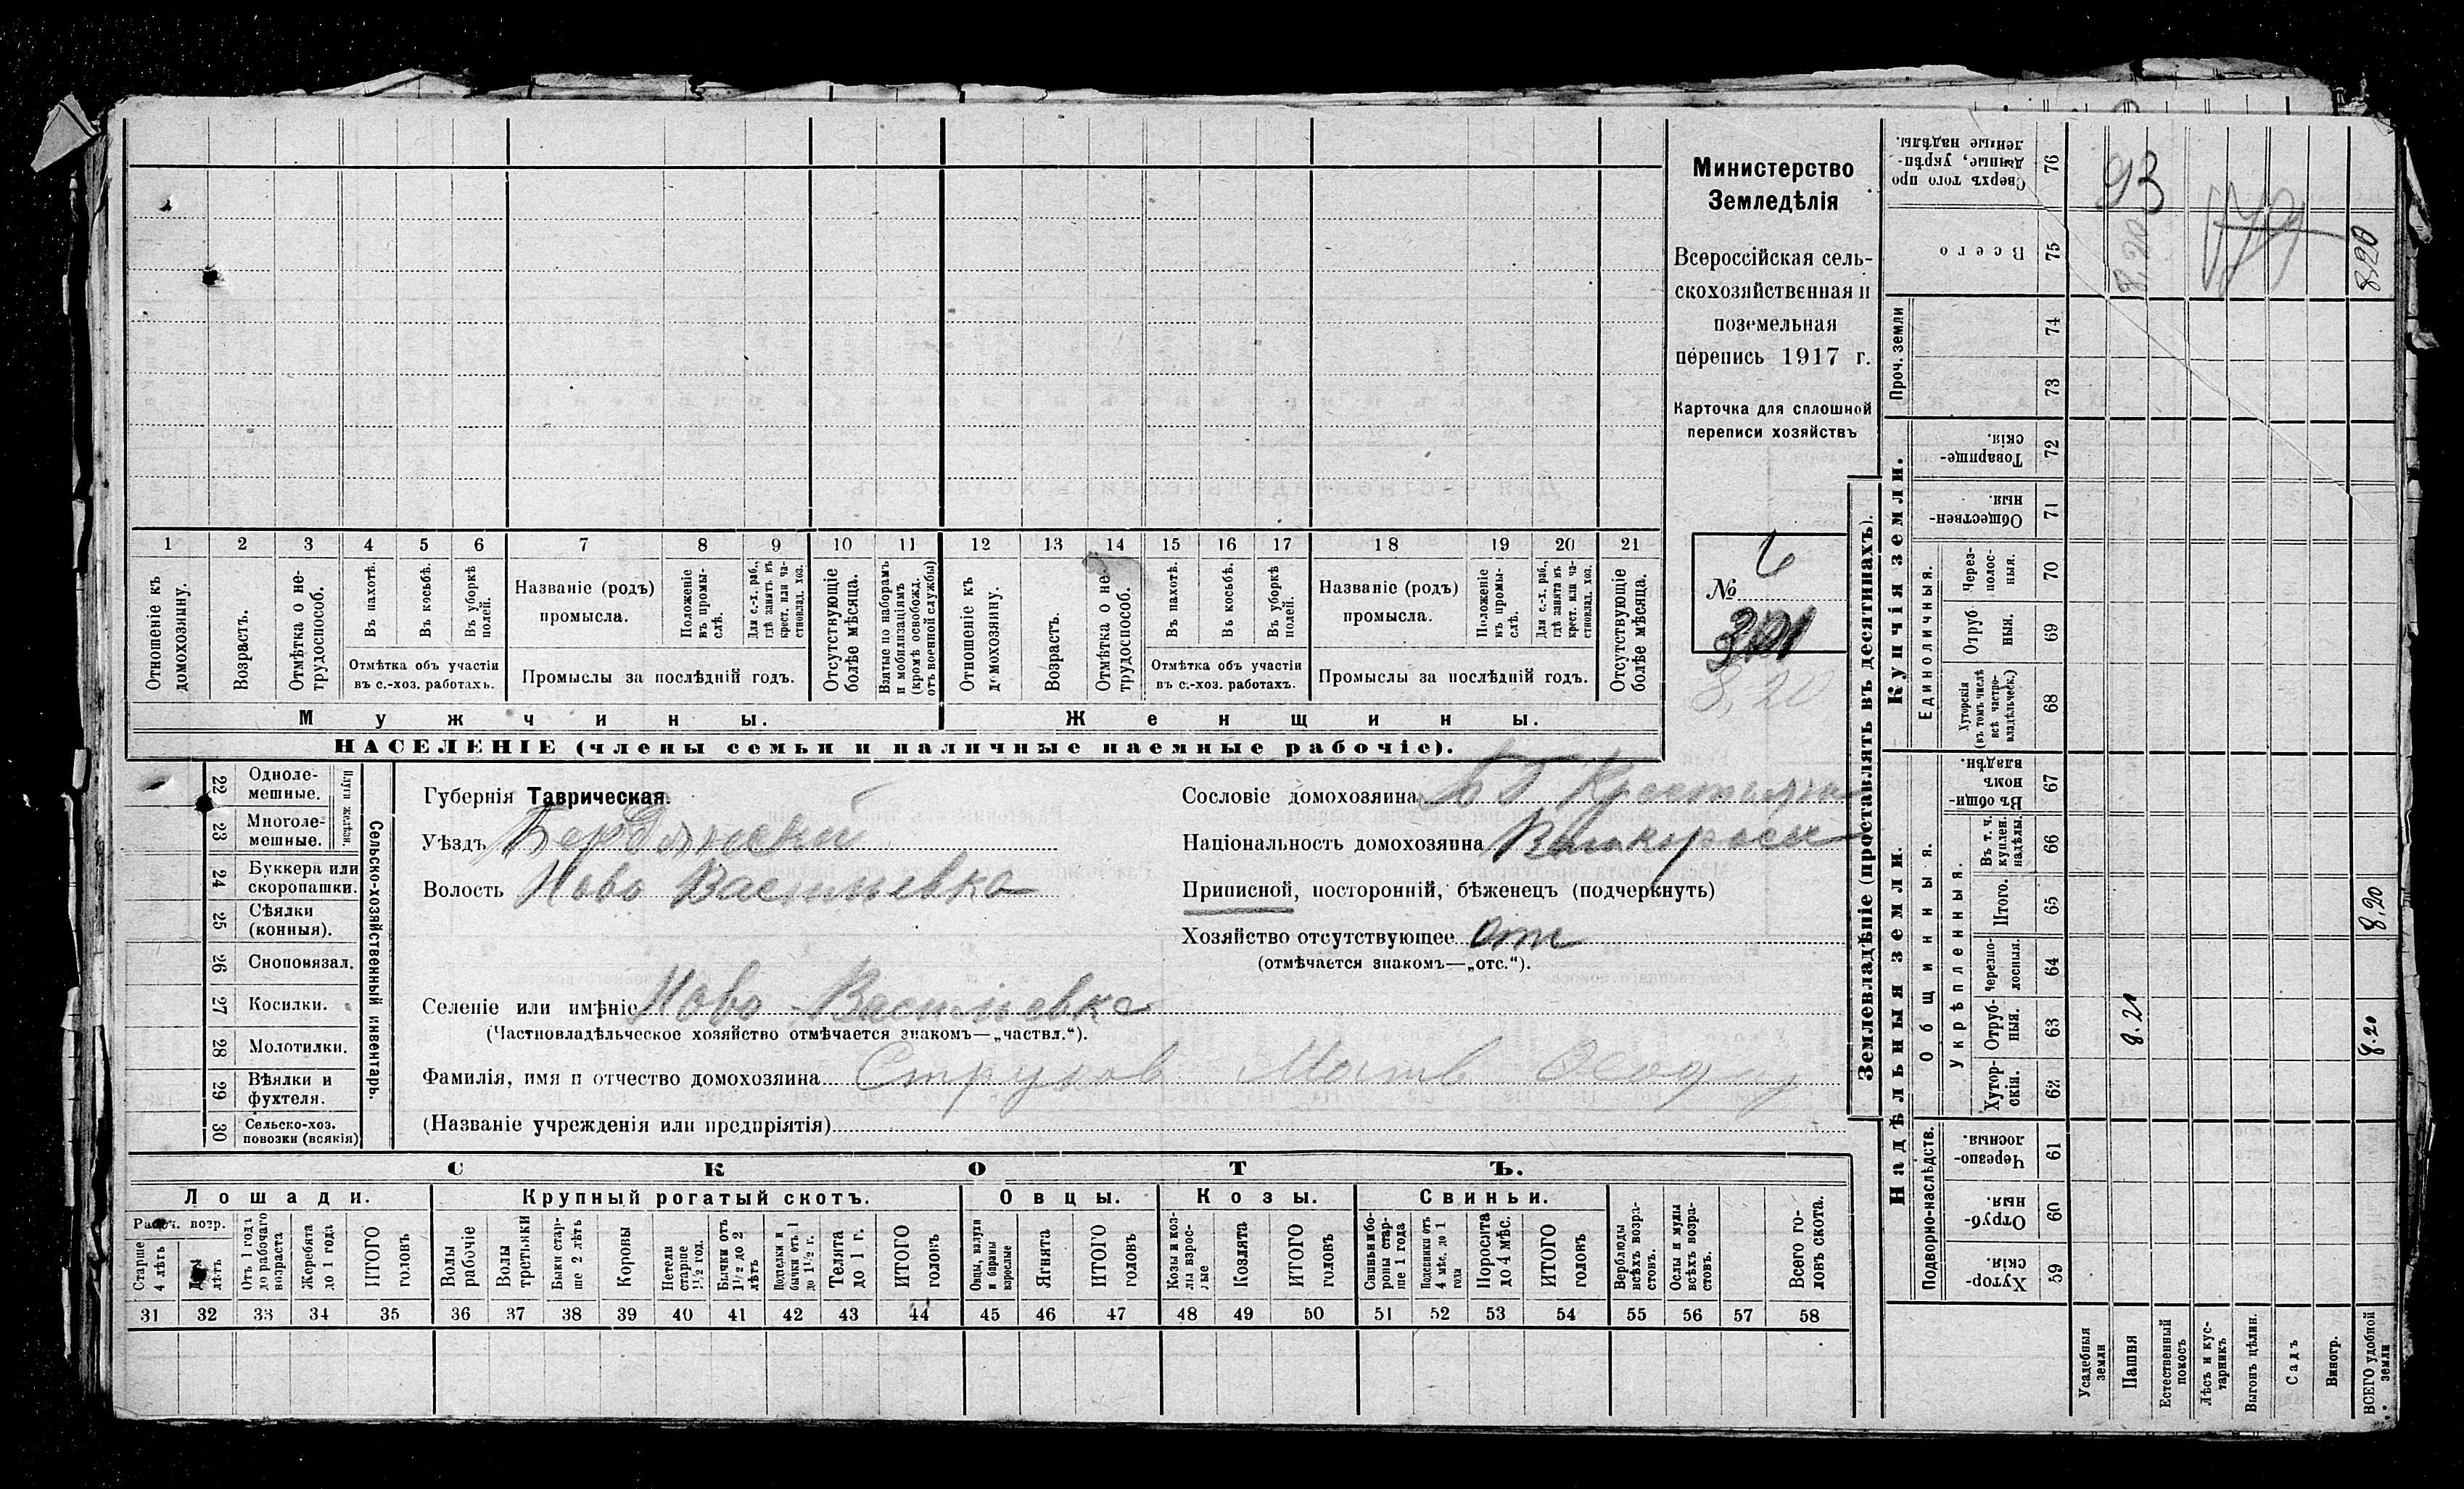 Министерство
Земледѣлія
Всероссійская сель-
скохозяйственная и
поземельная
перепись 1917 г.
Карточка для сплошной
переписи хозяйствъ
№ 6
8,20
1 2 3 4 5 6 7 8 9 10 11 12 13 14 15 16 17 18 19 20 21
Отношеніе къ домохозяину.
Возрастъ.
Отмѣтка о не-трудоспособ.
Въ пахотѣ.
Въ косьбѣ.
Въ уборкѣ полей.
Отмѣтка объ участіи
въ с.-хоз. работахъ.
Названіе (родъ)
промысла.
Положеніе въ промы-слѣ.
Для с.-х. раб., гдѣ занятъ въ крест. или ча-стновлад. хоз.
Промыслы за послѣдній годъ.
Отсутствующіе болѣе мѣсяца.
Взятые по наборамъ и мобилизаціямъ (кромѣ освобожд. отъ военной службы)
Отношеніе къ домохозяину.
Возрастъ.
Отмѣтка о не-трудоспособ.
Въ пахотѣ.
Въ косьбѣ.
Въ уборкѣ полей.
Отмѣтка объ участіи
въ с.-хоз. работахъ.
Названіе (родъ)
промысла.
Положеніе въ промы-слѣ.
Для с.-х. раб., гдѣ занятъ въ крест. или ча-стновлад. хоз.
Промыслы за послѣдній годъ.
Отсутствующіе болѣе мѣсяца.
Мужчины. Женщины.
НАСЕЛЕНІЕ (члены семьи и наличные наемные рабочіе).
22 Одноле-
мешные.
23 Многоле-
мешные.
Плуги желѣзн.
24 Буккера или
скоропашки.
25 Сѣялки
(конныя).
26 Сноповязал.
27 Косилки.
28 Молотилки.
29 Вѣялки и
фухтеля.
30 Сельско-хоз.
повозки (всякія)
Сельско-хозяйственный инвентарь.
Губернія Таврическая.
Уѣздъ Бердянский
Волость Ново Васильевка
Селеніе или имѣніе Ново-Васильевка
(Частновладѣльческое хозяйство отмѣчается знакомъ—„частвл.“).
Фамилія, имя и отчество домохозяина
(Названіе учрежденія или предпріятія)
Сословіе домохозяина
Національность домохозяина Великоросс
Приписной, посторонній, бѣженецъ (подчеркнуть)
Хозяйство отсутствующее отс
(отмѣчается знакомъ—„отс.“).
СКОТЪ.
Лошади. Крупный рогатый скотъ. Овцы. Козы. Свиньи.
Рабоч. возр.
Старше 4 лѣтъ
лѣтъ
Отъ 1 года до рабочаго возраста
Жеребята до 1 года
ИТОГО головъ
Волы рабочіе
Волы третьяки
Быки стар-ше 2 лѣтъ
Коровы
Нетели старше 1½ год.
Бычки отъ 1½ до 2 лѣтъ
Подтелки и бычки отъ 1 до 1½ г.
Телята до 1 г.
ИТОГО головъ
Овцы, валухи и бараны взрослые
Ягнята
ИТОГО головъ
Козы и коз-лы взрос-лые
Козлята
ИТОГО головъ
Свиньи и бо-ровы стар-ше 1 года
Подсвинки отъ 4 мѣс. до 1 года
Поросята до 4 мѣс.
ИТОГО головъ
Верблюды всѣхъ возра-стовъ.
Ослы и мулы всѣхъ возра-стовъ.
Всего го-ловъ скота.
31 32 33 34 35 36 37 38 39 40 41 42 43 44 45 46 47 48 49 50 51 52 53 54 55 56 57 58
Землевладѣніе (проставлять въ десятинахъ).
Купчія земли.
Надѣльныя земли.
Сверхъ того про-данные, укрѣп-ленные надѣлы. 76
93
Всего 75
8,20
179
8,20
Проч. земли
74
73
Товарище-скія. 72
Обществен-ныя. 71
Единоличныя.
Через-полос-ныя. 70
Отруб ныя. 69
Хуторскія (въ томъ числѣ всѣ частно-владѣльческ.) 68
Общинныя.
Въ общи-номъ владѣн. 67
Укрѣпленныя.
Въ т. ч. куплен. надѣлы. 66
Итого. 65
8,20
Черезпо-лосныя. 64
Отруб-ныя. 63
8.20
8.20
Хутор-скія. 62
Подворно-наслѣдств.
Черезпо-лосныя. 61
Отруб-ныя. 60
Хутор-скія. 59
Усадебныя земли
Пашня
Естественный покосъ
Лѣсъ и кус-тарникъ
Выгонъ цѣлин.
Садъ
Виногр.
ВСЕГО удобной земли